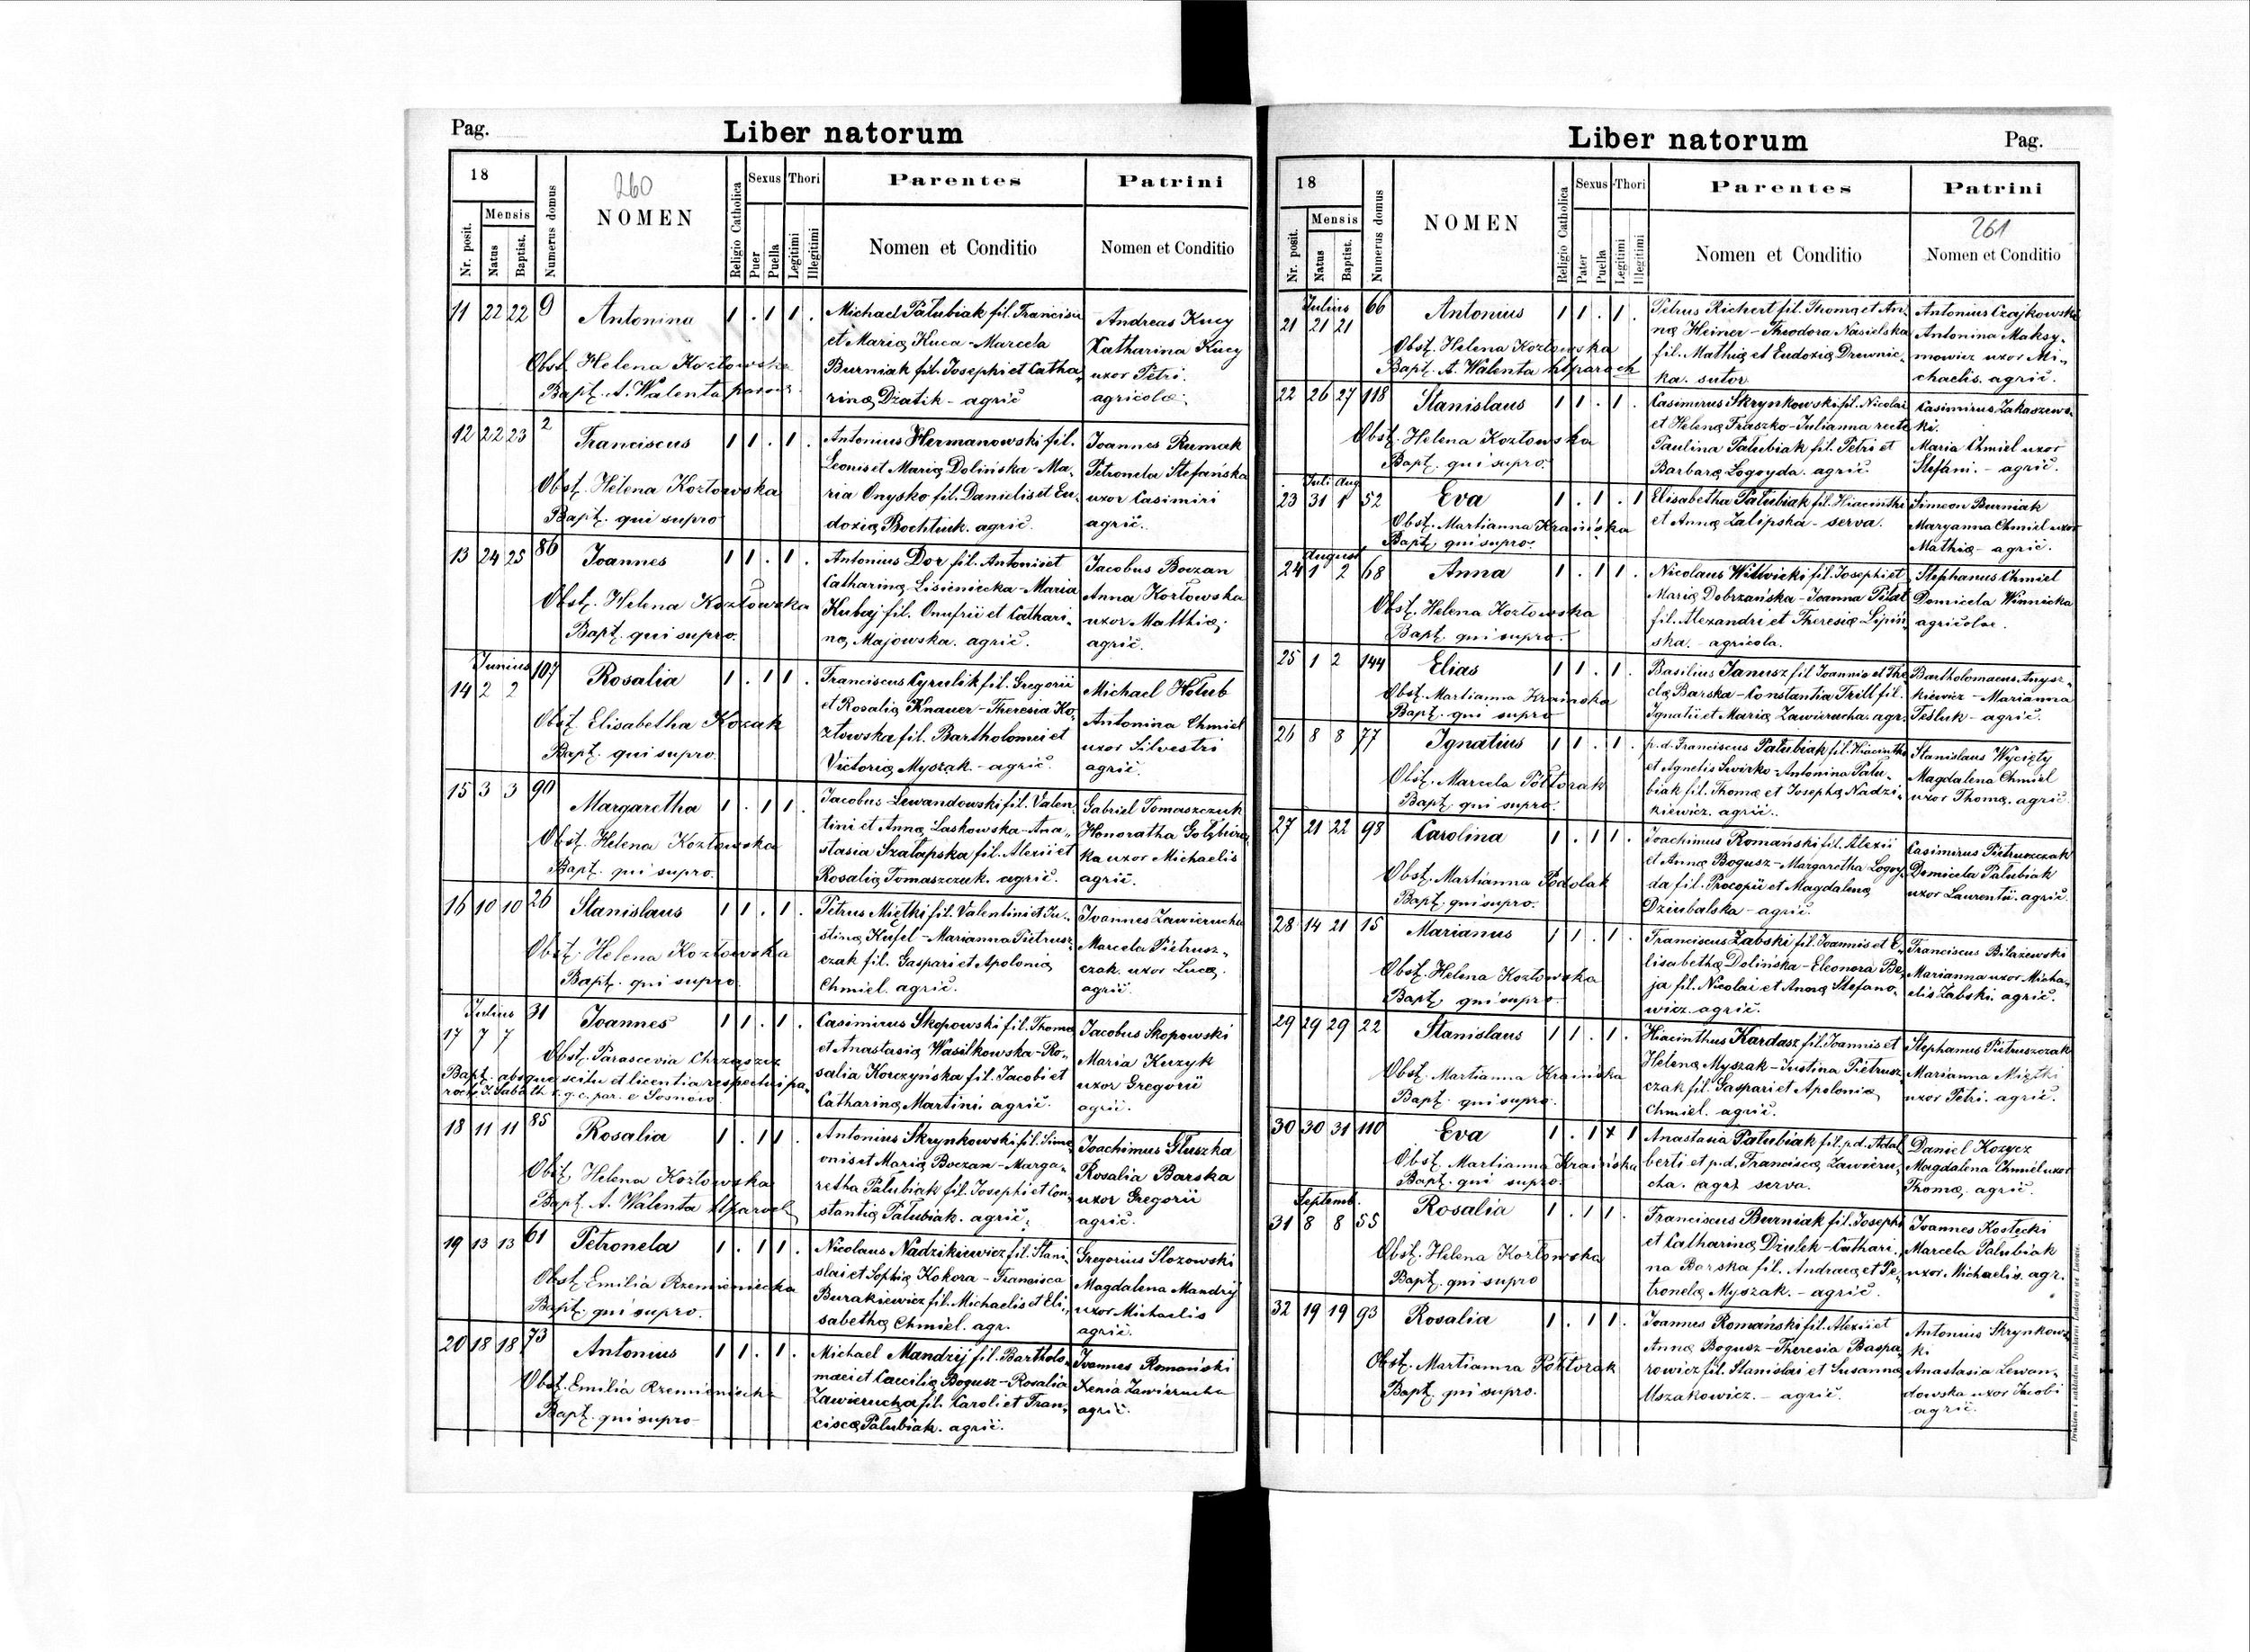 Pag.
Liber natorum
18
260
NOMEN
Mensis
Nr. posit.
Natus
Baptist.
Numerus domus
Religio Catholica
Sexus
Puer
Puella
Thori
Legitimi
Illegitimi
Parentes
Nomen et Conditio
Patrini
Nomen et Conditio
11 22 22 9 Antonina 1 . 1 1 .
Obst. Helena Kozłowska
Bapt. A. Walenta paroch
Michael Pałubiak fil. Francisci
et Mariæ Kuca - Marcela
Burniak fil. Josephi et Catha-
rinæ Dziatik - agric
Andreas Kucy
Katharina Kucy
uxor Petri.
agricolæ.
12 22 23 2 Franciscus 1 1 . 1 .
Obst. Helena Kozłowska
Bapt. qui supro
Antonius Hermanowski fil.
Leonis et Mariæ Dolińska - Ma-
ria Onysko fil. Danielis et Eu-
doxiæ Bochtiuk. agric.
Joannes Rumak
Petronela Stefańska
uxor Casimiri
agric.
13 24 25 86 Joannes 1 1 . 1 .
Obst. Helena Kozłowska
Bapt. qui supro.
Antonius Dor fil. Antoni et
Catharinæ Lisieniecka - Maria
Kubaj fil. Onufrii et Cathari-
næ Majowska. agric.
Jacobus Boczan
Anna Kozłowska
uxor Matthiæ
agric.
Junius
14 2 2 107 Rosalia 1 . 1 1 .
Obst. Elisabetha Kozak
Bapt. qui supro.
Franciscus Cyrulik fil. Gregorii
et Rosaliæ Knauer - Theresia Ko-
złowska fil. Bartholomei et
Victoriæ Myszak. - agric.
Michael Hołub
Antonina Chmiel
uxor Silvestri
agric.
15 3 3 90 Margaretha 1 . 1 1 .
Obst. Helena Kozłowska
Bapt. qui supro.
Jacobus Lewandowski fil. Valen-
tini et Annæ Laskowska - Ana-
stasia Szałapska fil. Alexii et
Rosaliæ Tomaszczuk. agric.
Gabriel Tomaszczuk
Honoratha
ka uxor Michaelis
agric.
16 10 10 26 Stanislaus 1 1 . 1 .
Obst. Helena Kozłowska
Bapt. qui supro.
Petrus Miętki fil. Valentini et Ju-
stinæ Kufel - Marianna Pietrusz-
czak fil. Gaspari et Apoloniæ
Chmiel. agric.
Joannes Zawierucha
Marcela Pietrusz-
czak uxor Lucæ.
agric.
Julius
17 7 7 31 Joannes 1 1 . 1 .
Obst. Parascevia Chrząszcz
Bapt. absque scitu et licentia respectivi pa-
rochi J. Sabath r. g. c. par. e Sosnow
Casimirus Skopowski fil. Thomæ
et Anastasiæ Wasilkowska - Ro-
salia Korczyńska fil. Jacobi et
Catharinæ Martini. agric.
Jacobus Skopowski
Maria Kuzyk
uxor Gregorii
agric.
18 11 11 85 Rosalia 1 . 1 1 .
Obst. Helena Kozłowska
Bapt. A. Walenta paroch
Antonius Skrynkowski fil. Sime-
onis et Mariæ Boczan - Marga-
retha Pałubiak fil. Josephi et Con-
stantiæ Pałubiak. agric.
Joachimus Głuszka
Rosalia Barska
uxor Gregorii
agric.
19 13 13 61 Petronela 1 . 1 1 .
Obst. Emilia Rzemieniecka
Bapt. qui supro.
Nicolaus Nadzikiewicz fil. Stani-
slai et Sophiæ Kokora - Francisca
Burakiewicz fil. Michaelis et Eli-
sabethæ Chmiel. agr.
Gregorius Słozowski
Magdalena Mandrij
uxor Michaelis
agric.
20 18 18 73 Antonius 1 1 . 1 .
Obst. Emilia Rzemieniecka
Bapt. qui supro
Michael Mandrij fil. Bartholo-
maei et Caeciliæ Bogusz - Rosalia
Zawierucha fil. Caroli et Fran-
ciscæ Pałubiak. agric.
Joannes Romański
Xenia Zawierucha
agric.
Liber natorum
Pag.
18
Mensis
Nr. posit.
Natus
Baptist.
Numerus domus
NOMEN
Religio Catholica
Sexus
Pater
Puella
Thori
Legitimi
Illegitimi
Parentes
Nomen et Conditio
Patrini
261
Nomen et Conditio
Julius
21 21 21 66 Antonius 1 1 . 1 .
Obst. Helena Kozłowska
Bapt. A. Walenta paroch
Petrus Richert fil. Thomæ et An-
næ Heiner - Theodora Nasielska
fil. Mathiæ et Eudoxiæ Drewnic-
ka. sutor
Antonius Czajkowski
Antonina Maksy-
mowicz uxor Mi-
chaelis. agric.
22 26 27 118 Stanislaus 1 1 . 1 .
Obst. Helena Kozłowska
Bapt. qui supro.
Casimirus Skrynkowski fil. Nicolai
et Helenæ Fraszko - Julianna recte
Paulina Pałubiak fil. Petri et
Barbaræ Łogoyda. agric.
Casimirus Zakaszews-
ki.
Maria Chmiel uxor
Stefani. - agric.
Juli Aug
23 31 1 52 Eva 1 . 1 . 1
Obst. Martianna Kraińska
Bapt. qui supro.
Elisabetha Pałubiak fil. Hiacinthi
et Annæ Zalipska - serva.
Simeon Burniak
Maryanna Chmiel uxor
Mathiæ - agric.
August
24 1 2 68 Anna 1 . 1 1 .
Obst. Helena Kozłowska
Bapt. qui supro.
Nicolaus Witwicki fil. Josephi et
Mariæ Dobrzańska - Joanna Piłat
fil. Alexandri et Theresiæ Lipiń-
ska. - agricola.
Stephanus Chmiel
Domicela Winnicka
agricolae.
25 1 2 144 Elias 1 1 . 1 .
Obst. Martianna Kraińska
Bapt. qui supro
Basilius Janusz fil. Joannis et The-
clæ Barska - Constantia Trill fil.
Ignatii et Mariæ Zawierucha. agr.
Bartholomaeus Anysz-
kiewicz - Marianna
Tesluk - agric.
26 8 8 77 Ignatius 1 1 . 1 .
Obst. Marcela Półtorak
Bapt. qui supro.
p. d. Franciscus Pałubiak fil. Hiacinthi
et Agnetis Swirko - Antonina Pału-
biak fil. Thomæ et Josephæ Nadzi-
kiewicz. agric.
Stanislaus Wycięty
Magdalena Chmiel
uxor Thomæ. agric
27 21 22 98 Carolina 1 . 1 1 .
Obst. Martianna Podolak
Bapt. qui supro.
Joachimus Romański fil. Alexii
et Annæ Bogusz - Margaretha Łogoy-
da fil. Procopii et Magdalenæ
Dziubalska - agric.
Casimirus Pietruszczak
Domicela Pałubiak
uxor Laurentii. agric.
28 14 21 15 Marianus 1 1 . 1 .
Obst. Helena Kozłowska
Bapt. qui supro.
Franciscus Żabski fil. Joannis et E-
lisabethæ Dolińska - Eleonora Be-
ja fil. Nicolai et Annæ Stefano-
wicz. agric.
Franciscus Bilażewski
Marianna uxor Micha-
elis Żabski. agric.
29 29 29 22 Stanislaus 1 1 . 1 .
Obst. Martianna Kraińska
Bapt. qui supro.
Hiacinthus Kardasz fil. Joannis et
Helenæ Myszak - Justina Pietrusz-
czak fil. Gaspari et Apoloniæ
Chmiel. agric.
Stephanus Pietruszczak
Marianna Miętki
uxor Petri. agric.
30 30 31 110 Eva 1 . 1 1
Obst. Martianna Kraińska
Bapt. qui supro.
Anastasia Pałubiak fil. p. d. Adal-
berti et p. d. Franciscæ Zawieru-
cha. agr. serva.
Daniel Kozycz
Magdalena Chmiel uxor
Thomæ, agric.
Septemb.
31 8 8 55 Rosalia 1 . 1 1 .
Obst. Helena Kozłowska
Bapt. qui supro
Franciscus Burniak fil. Josephi
et Catharinæ Dziulek - Cathari-
na Barska fil. Andreaæ et Pe-
tronelæ Myszak. - agric.
Joannes Kostecki
Marcela Pałubiak
uxor Michaelis. agr.
32 19 19 93 Rosalia 1 . 1 1 .
Obst. Martianna Półtorak
Bapt. qui supro.
Joannes Romański fil. Alexii et
Annæ Bogusz - Theresia Baspa-
rowicz fil. Stanislai et Susannæ
Uszakowicz. - agric.
Antonius Skrynkows-
ki
Anastasia Lewan-
dowska uxor Jacobi
agric.